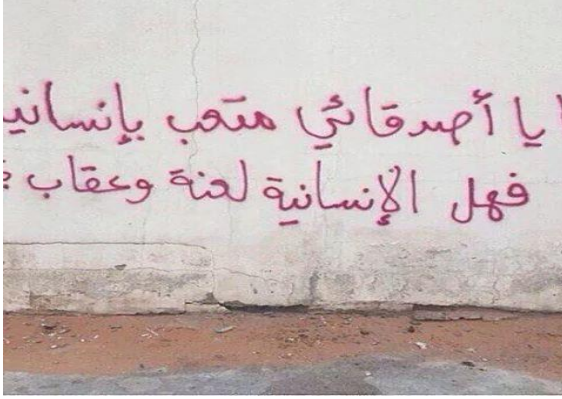 يا أصدقائي متعب بإنساني
فهل الإنسانية لعنة وعقاب